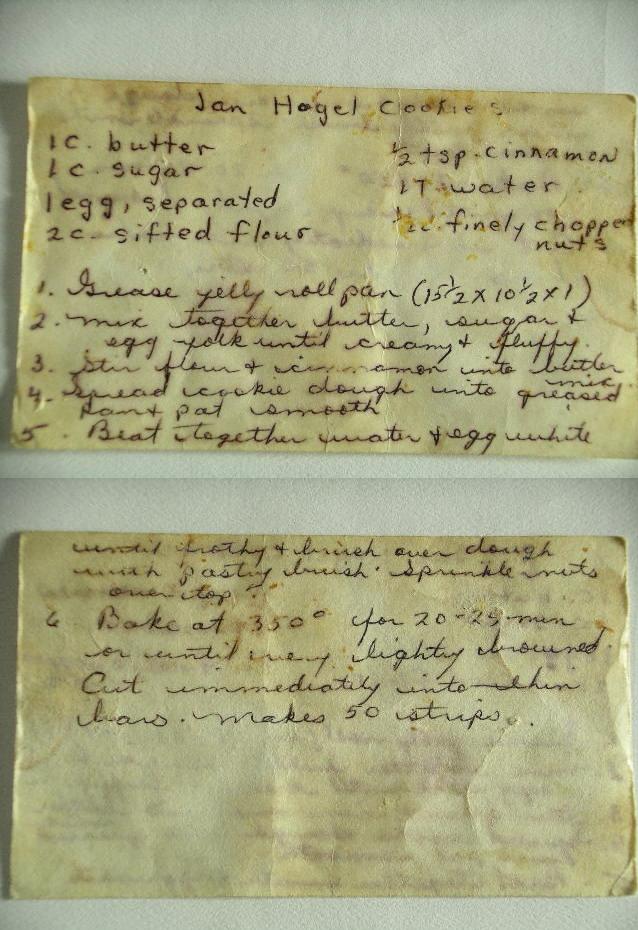 Jan Hagel Cookies
1 c. butter
1 c. sugar
1 egg, separated
2 c. sifted flour
1/2 tsp. cinnamon
1 T. water
1/2 c. finely chopped
nuts
1. Grease jelly roll pan (15 1/2 x 10 1/2 x 1)
2. Mix together butter, sugar &
egg yolk until creamy & fluffy.
3. Stir flour & cinnamon into butter
mix.
4. Spread cookie dough into greased
pan & pat smooth
5. Beat together water & egg white
until frothy & brush over dough
with pastry brush. Sprinkle nuts
over top.
6 Bake at 350° for 20-25 min
or until very lightly browned.
Cut immediately into thin
bars. Makes 50 strips.